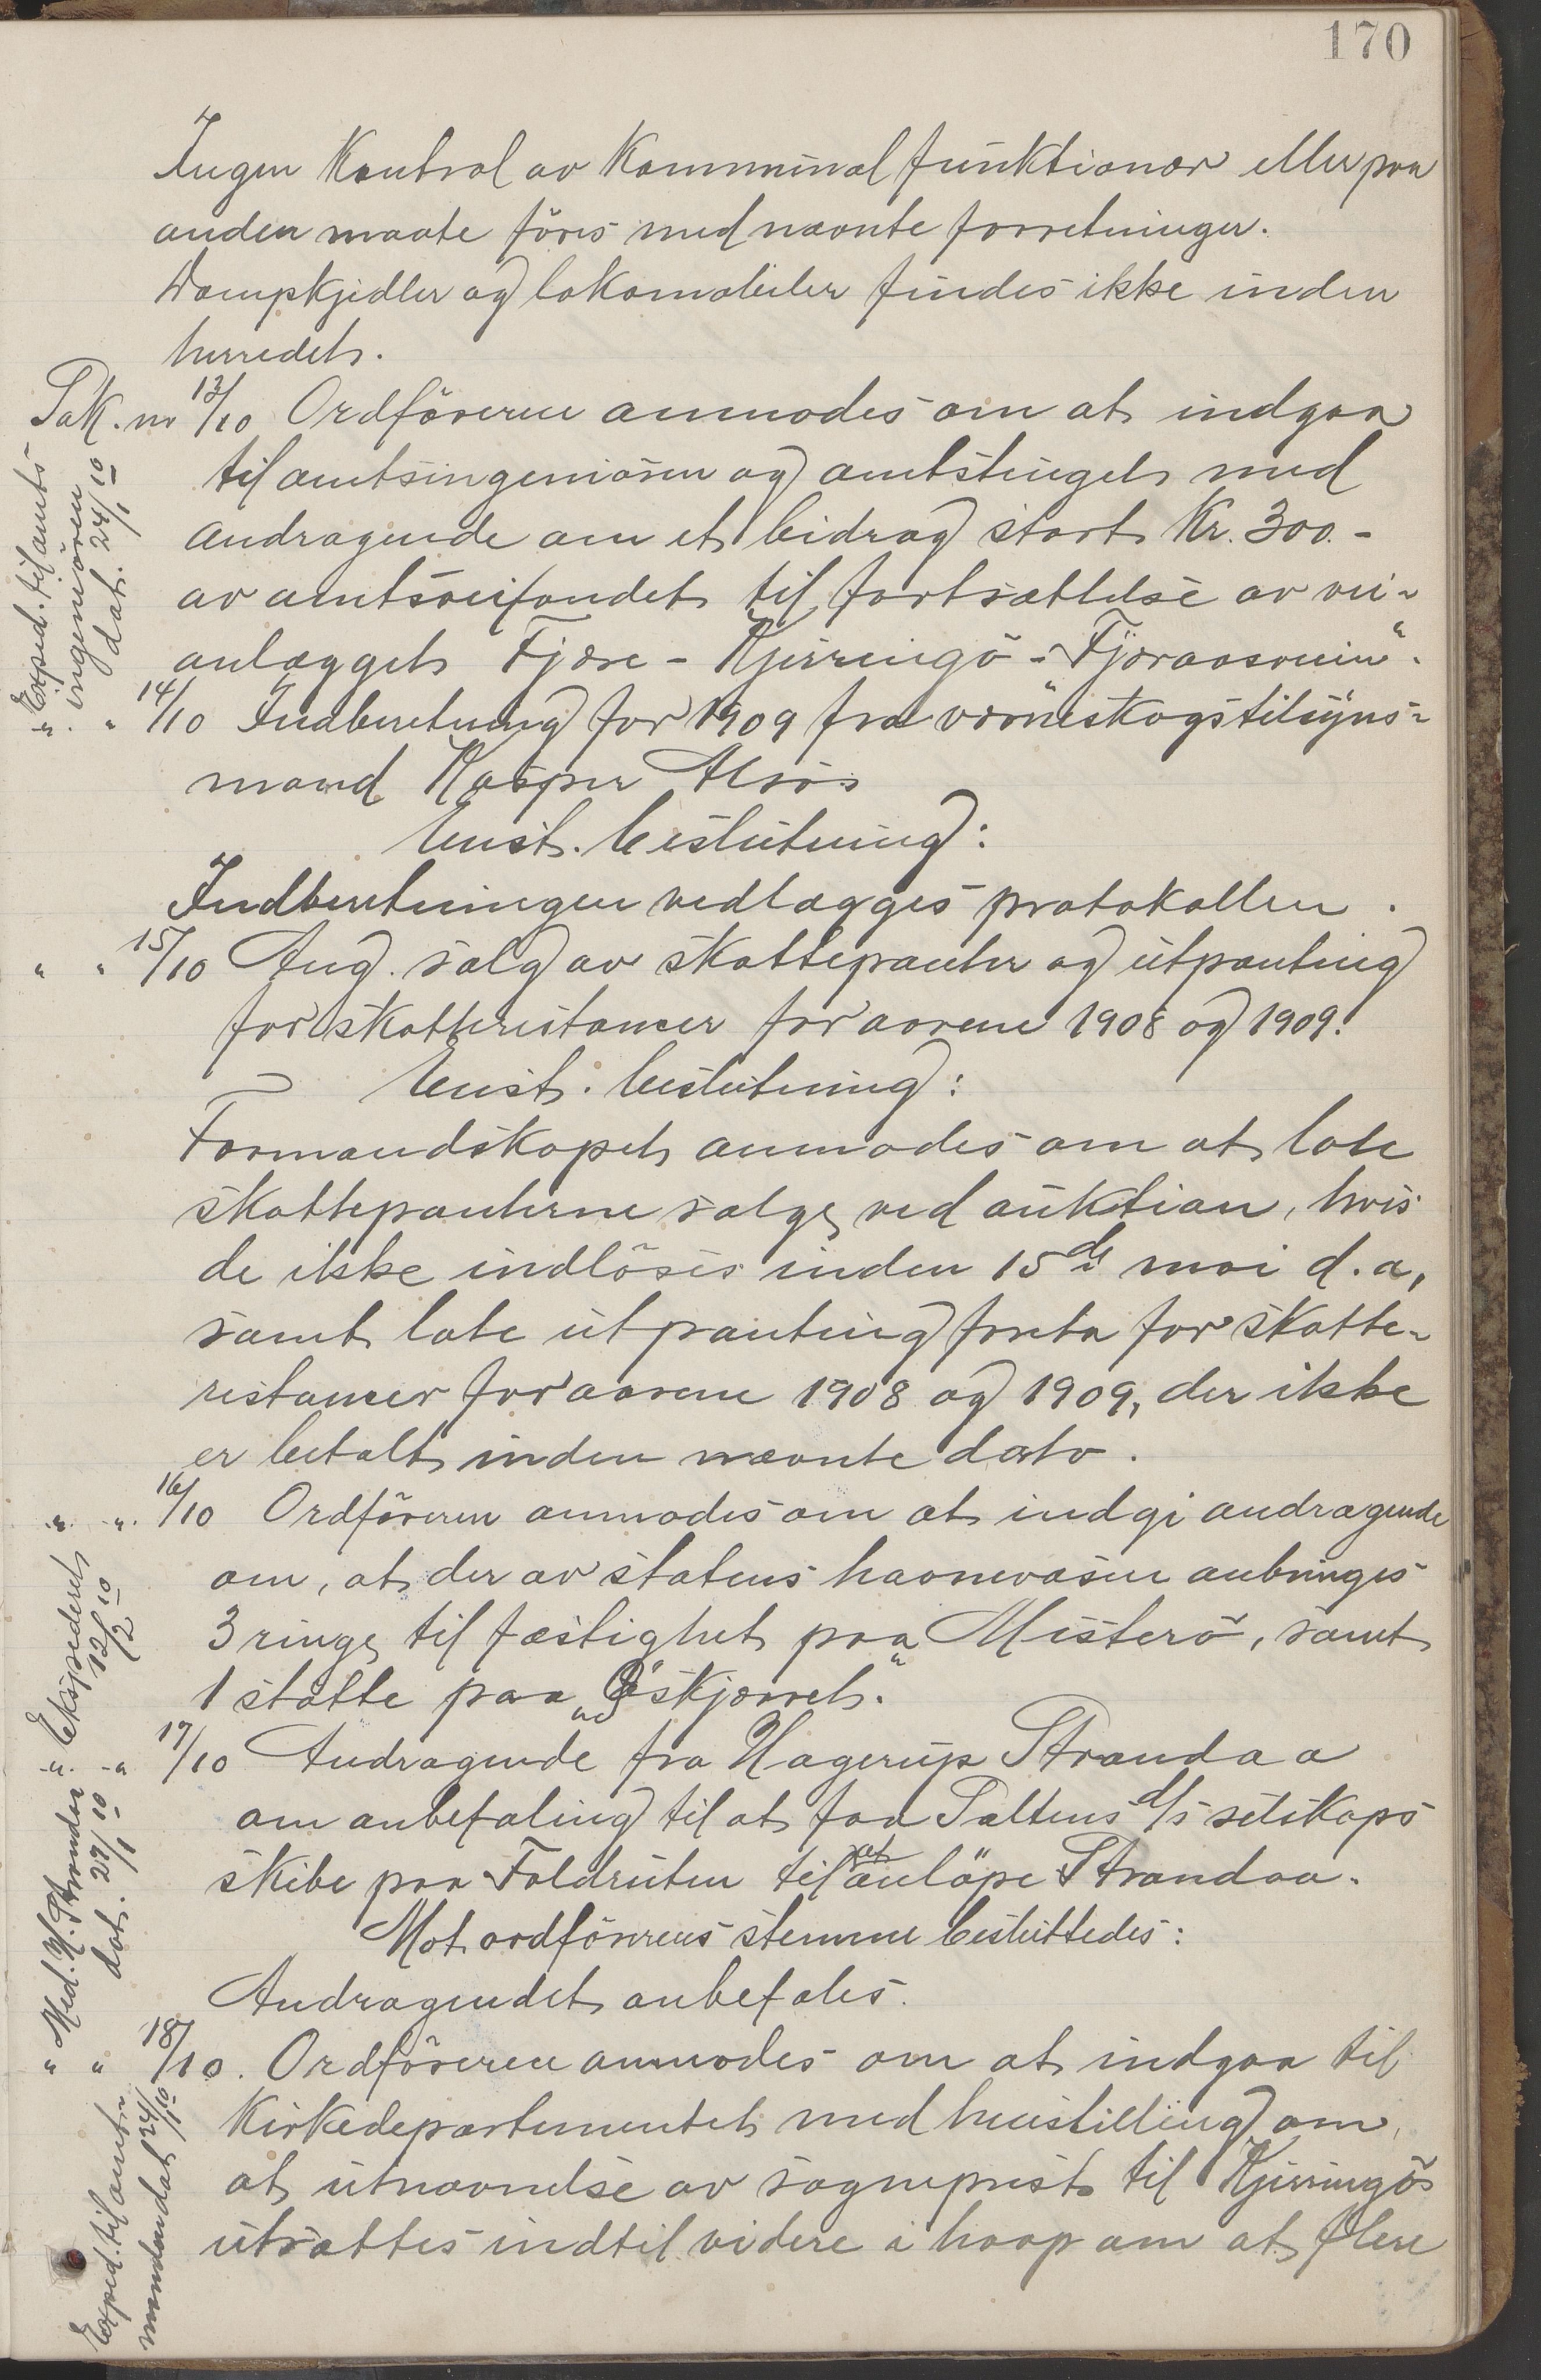 170
Ingen Kontrol av Kommunal funktionær eller paa
anden maate föres med nævnte forretninger.
Dampkjedler og lokomobiler findes ikke inden
herredet.
Sak. nr 13/10 Ordföreren anmodes om at indgaa
til amtsingeniören og amtstinget med
andragende om et bidrag stort Kr. 300.-
av amtsveifondet til fortsættelse av vei-
anlægget Fjære - Kjerringö - "Fjæraasveien".
" " 14/10 Indberetning for 1909 fra verneskogstilsyns-
mand Kasper Alsos
Enst. beslutning:
Indberetningen vedlægges protokollen.
" " 15/10 Ang. salg av skattepanter og utpanting
for skatterestancer for aarene 1908 og 1909.
Enst. beslutning:
Formandskapet anmodes om at late
skattepanterne sælge ved auktion, hvis
de ikke indlöses inden 15de mai d.a,
samt late utpanting foreta for skatte-
restancer for aarene 1908 og 1909, der ikke
er betalt inden nævnte dato.
" " 16/10 Ordföreren anmodes om at indgi andragende
om, at der av statens havnevæsen anbringes
3 ringe til fæstighet paa Misterö, samt
1 stötte paa " skjærret."
" " 17/10 Andragende fra Hagerup Strandaa
om anbefaling til at faa Saltens d/s selskaps
skibe paa Foldruten til at anlöpe Strandaa.
Mot ordförerens stemme besluttedes:
Andragendet anbefales.
" " 18/10. Ordföreren anmodes om at indgaa til
Kirkedepartementet med henstilling om,
at utnævnelse av sogneprest til Kjerringö
utsættes indtil videre i haap om at flere
Exped. til amts
ingeniören
dat. 24/1 10
Ekspederet
12/2 10
Med. H. Strandaa
dat. 29/1 10
Exped. til amt-
manden dat 24/1 10